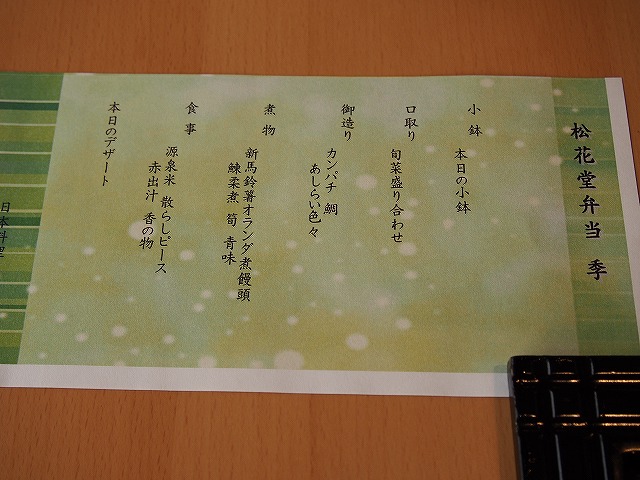 松花堂弁当 季
小鉢
本日の小鉢
口取り
旬菜盛り合わせ
御造り
カンパチ 鯛
あしらい色々
煮物
新馬鈴薯オランダ煮饅頭
鰊柔煮 筍 青味
食事
源泉米 散らしピース
赤出汁 香の物
本日のデザート
日本料理